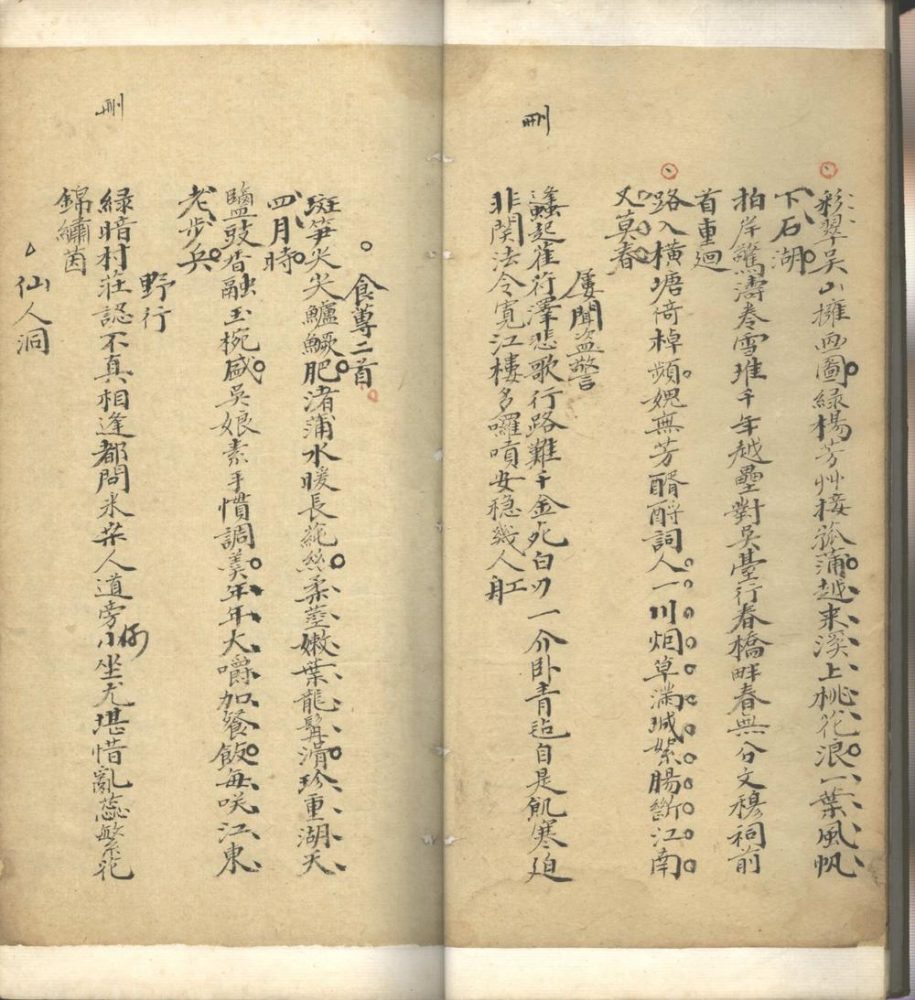 彩翠吳山擁畫圖綠楊芳艸接菰蒲越来溪上桃花浪一葉風帆
下石湖
拍岸驚濤卷雪堆千年越壘對吳臺行春橋畔春無分文穆祠前
首重迴
路入橫塘倚棹頻媿無芳醑酹詞人一川烟草滿城絮腸斷江南
又莫春
屢聞盗警
刪
蠭起萑苻澤悲歌行路難千金死白刃一介卧青氈自是飢寒廹
非関法令寛江樓多囉嗊安穩幾人船
食蓴二首
斑笋尖尖鱸鱖肥渚蒲水暖長蒓絲柔莖嫩葉龍髯滑珍重湖天
四月時
鹽豉香融玉椀盛吳娘素手慣調羹年年大嚼加餐飯每咲江東
老步兵
野行
刪
綠暗村莊認不真相逢都問米柴人道旁小坐尤堪惜亂蕊繁花
錦繡茵
仙人洞